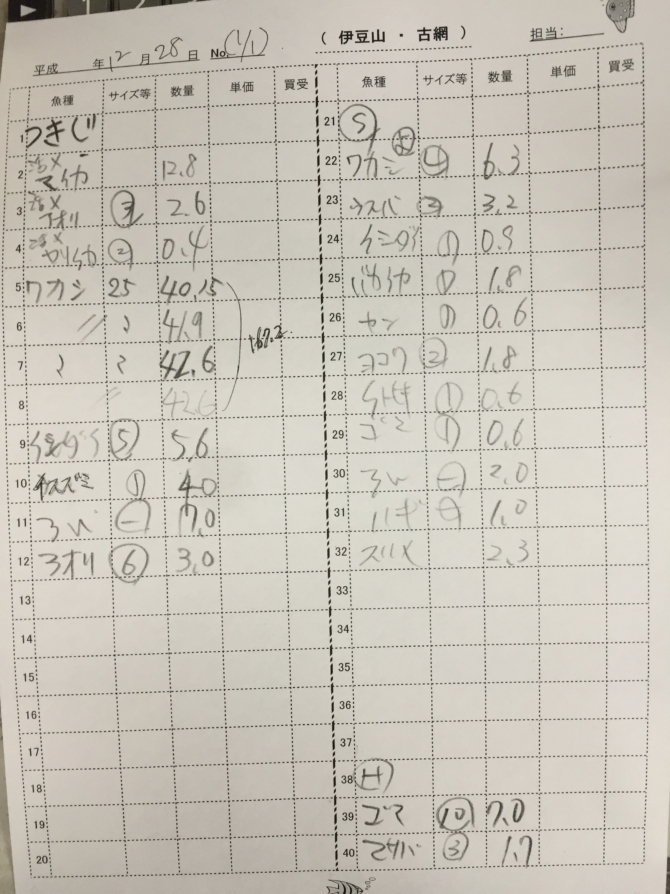 ( 伊豆山 ・ 古網 )
平成 年 12 月 28 日 No. (1/1)
担当:
魚種 サイズ等 数量 単価 買受
1 つきじ
2 活〆 マイカ 12.8
3 活〆 アオリ ③ 2.6
4 活〆 ヤリイカ ② 0.4
5 ワカシ 25 40.15
6 〃 〃 41.9
7 〃 〃 42.6
8 〃 42.6
167.2
9 イシダイ ⑤ 5.6
10 イスズミ ① 4.0
11 ㊀ 7.0
12 アオリ ⑥ 3.0
13
14
15
16
17
18
19
20
魚種 サイズ等 数量 単価 買受
21 Ⓢ
22 ワカシ ④ 6.3
23 ウスバ ③ 3.2
24 イシダイ ① 0.9
25 バカイカ ① 1.8
26 ① 0.6
27 ヨコワ ② 1.8
28 ① 0.6
29 ゴマ ① 0.6
30 ㊀ 2.0
31 ハギ 1.0
32 スルメ 2.3
33
34
35
36
37
38 Ⓗ
39 ゴマ ⑩ 7.0
40 マサバ ③ 1.7